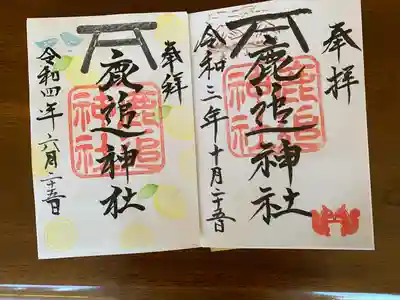 奉拝
鹿追神社
令和三年十月二十五日
鹿追神社
奉拝
鹿追神社
令和四年六月二十五日
鹿追神社